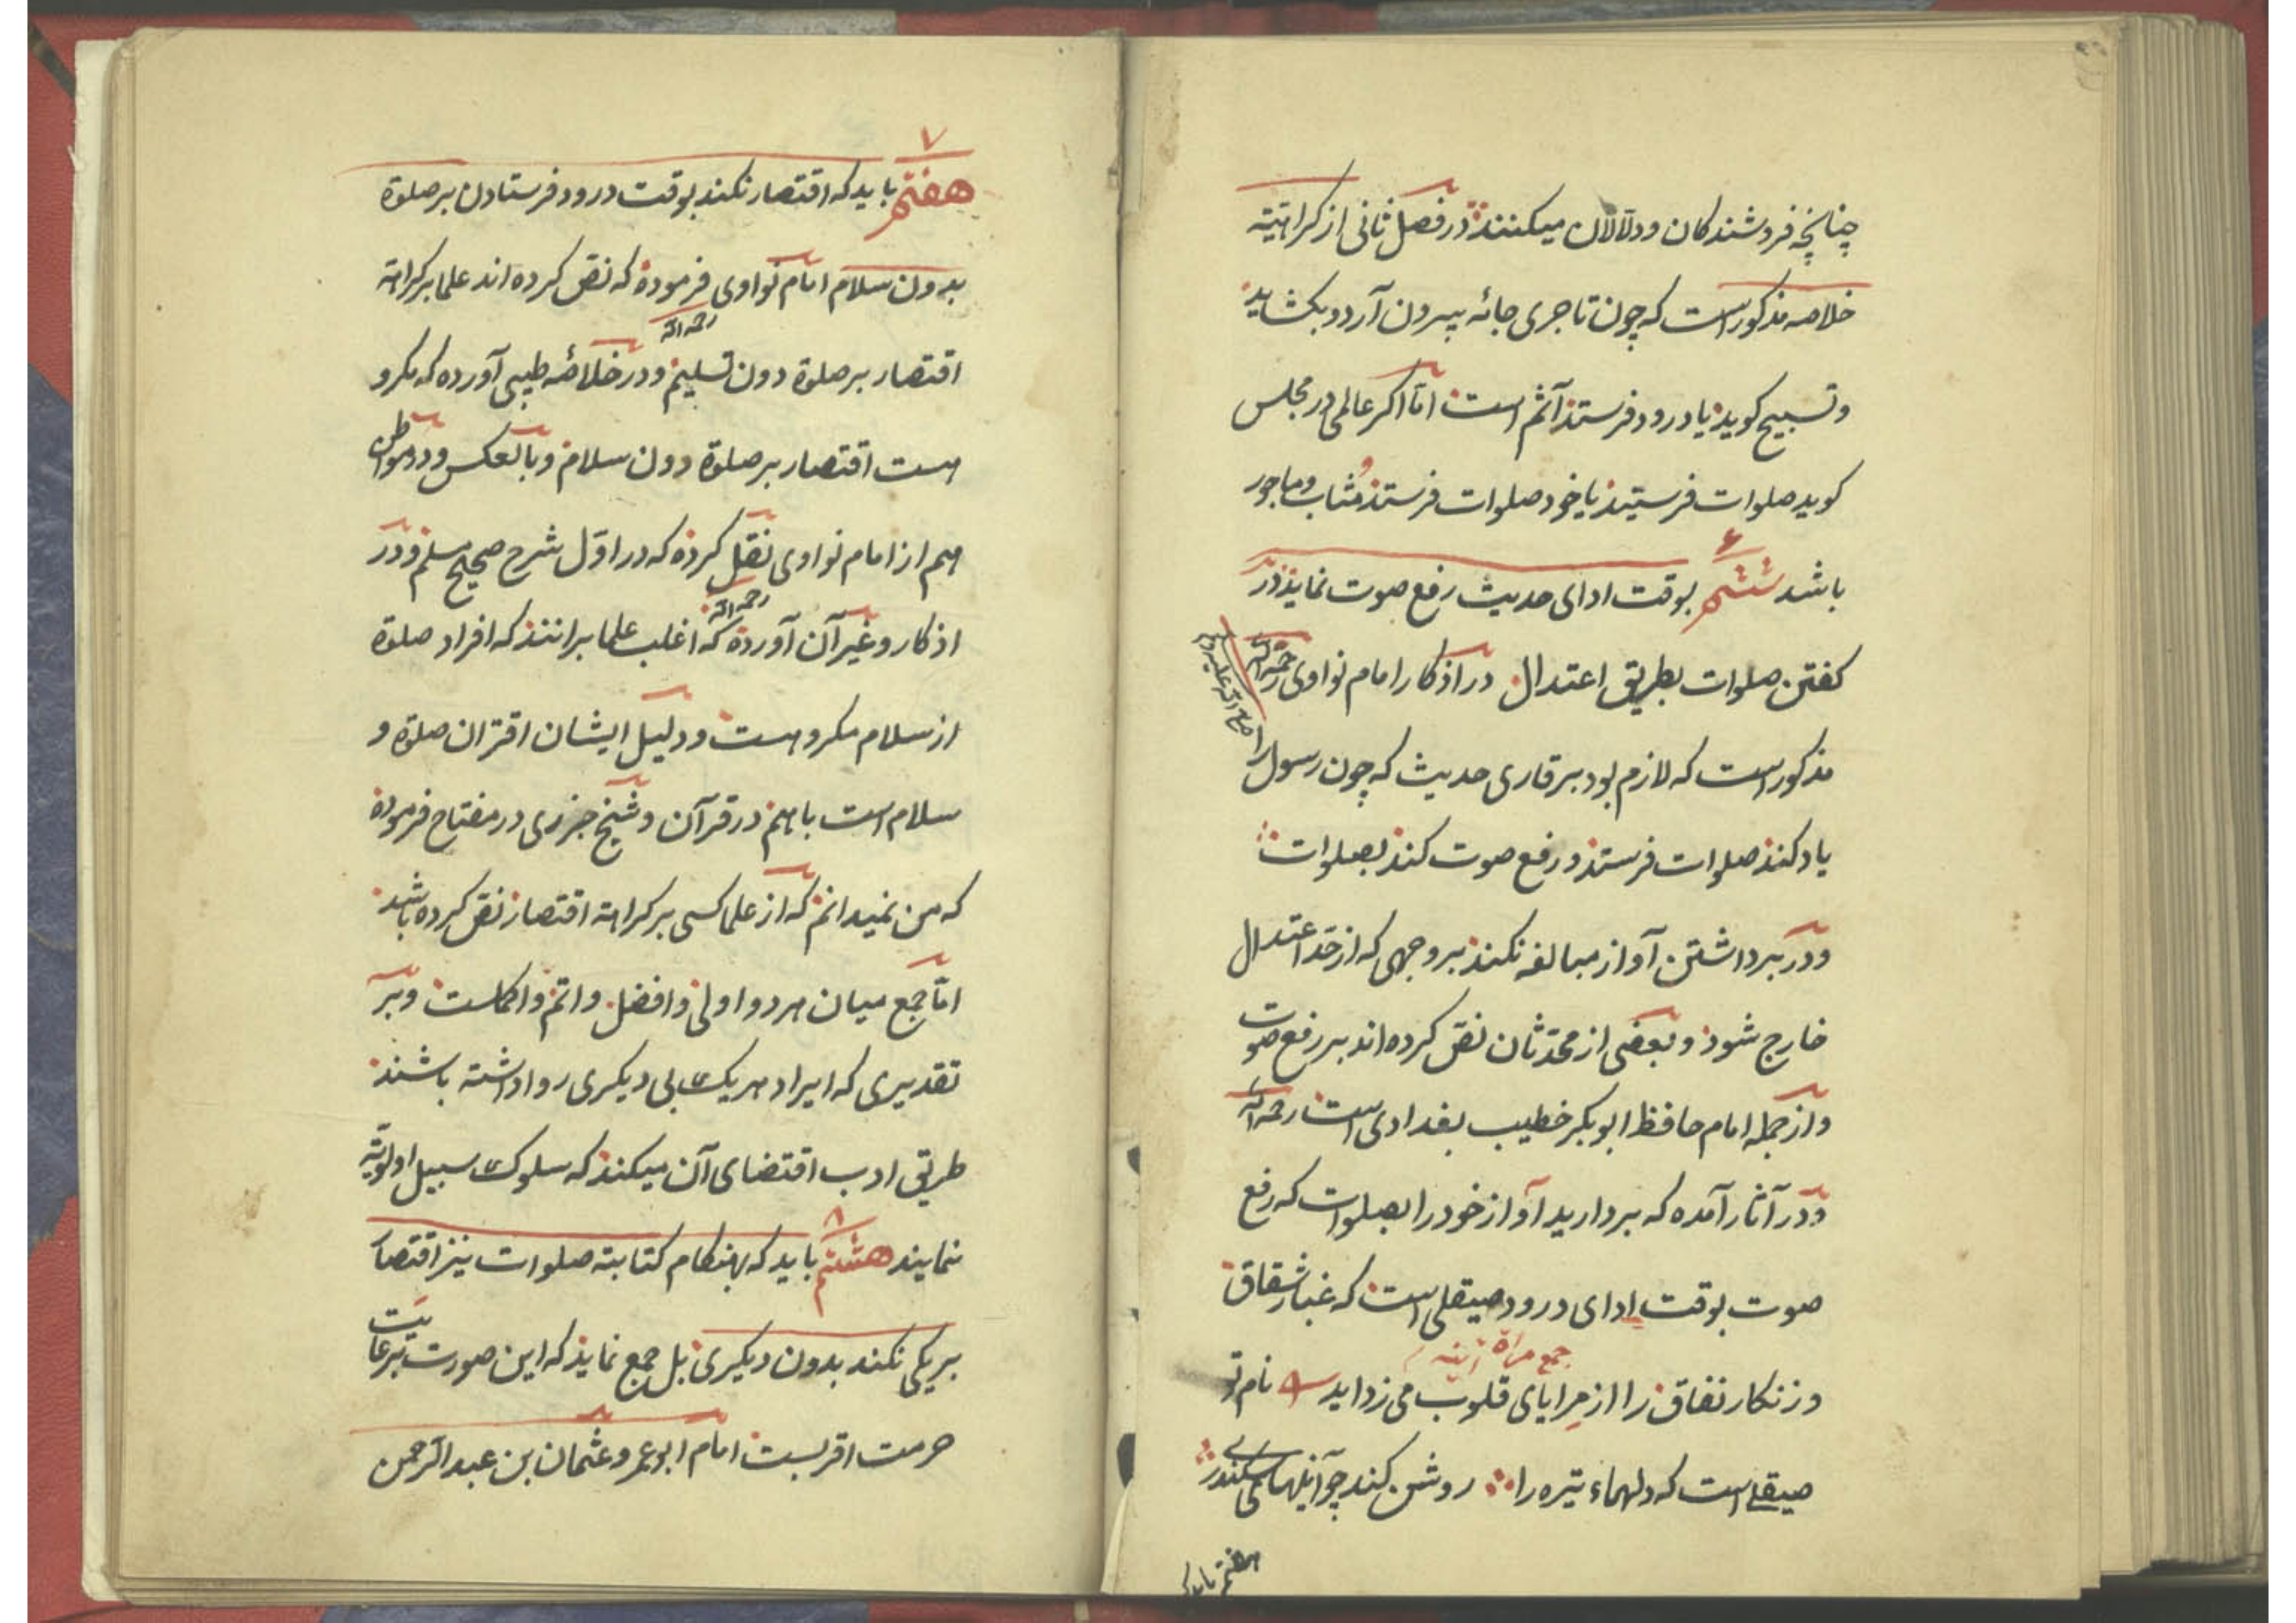 چنانچه فروشندکان و دلالان میکنند در فصل ثانی از کراهیته
خلاصه مذکور است که چون تاجری جائه بیرون آرد و بکشاید
و تسبیح کوید یا درود فرستد آثم است اما اکر عالمی در مجلس
کوید صلوات فرستید یا خود صلوات فرستد مثاب و ماجور
۶
باشد ششم بوقت ادای حدیث رفع صوت نماید در
کفتن صلوات بطریق اعتدال در اذکار امام نواوی رحمه الله
مذکور است که لازم بود بر قاری حدیث که چون رسول را
صلی الله علیه وسلم
یاد کند صلوات فرستد و رفع صوت کند بصلوات
و در برداشتن آواز مبالغه نکند بر وجهی که از حد اعتدال
خارج شود و بعضی از محدثان نص کرده اند بر رفع صوت
و از جمله امام حافظ ابوبکر خطیب بغدادی است رحمه الله
و در آثار آمده که بردارید آواز خود را بصلوات که رفع
صوت بوقت ادای درود صیقلی است که غبار شقاق
جمع مراة آینه
و زنکار نفاق را از مرایای قلوب می زداید نام تو
صیقلی است که دلهاء تیره را روشن کند چو آینهای سکندری
هفتم باید که
۷
هفتم باید که اقتصار نکند بوقت درود فرستادن بر صلوة
بدون سلام امام نواوی فرموده که نص کرده اند علما بر کراهة
رحمه الله
اقتصار بر صلوة دون تسلیم و در خلاصه طیبی آورده که مکرو
هست اقتصار بر صلوة دون سلام و بالعکس و در مواطن
هم از امام نواوی نقل کرده که در اول شرح صحیح مسلم و در
رحمه الله
اذکار و غیر آن آورده که اغلب علما برانند که افراد صلوة
از سلام مکروهست و دلیل ایشان اقتران صلوة و
سلام است باهم در قرآن و شیخ جزری در مفتاح فرموده
که من نمیدانم که از علما کسی بر کراهة اقتصار نص کرده باشد
اما جمع میان هر دو اولی و افضل و اتم و اکملست و بر
تقدیری که ایراد هر یک بی دیکری روا داشته باشند
طریق ادب اقتضای آن میکند که سلوک سبیل اولویة
۸
نمایند هشتم باید که بهنکام کتابة صلوات نیز اقتصار
بر یکی نکند بدون دیکری بل جمع نماید که این صورت برعایت
حرمت اقربست امام ابو عمرو عثمان بن عبد الرحمن